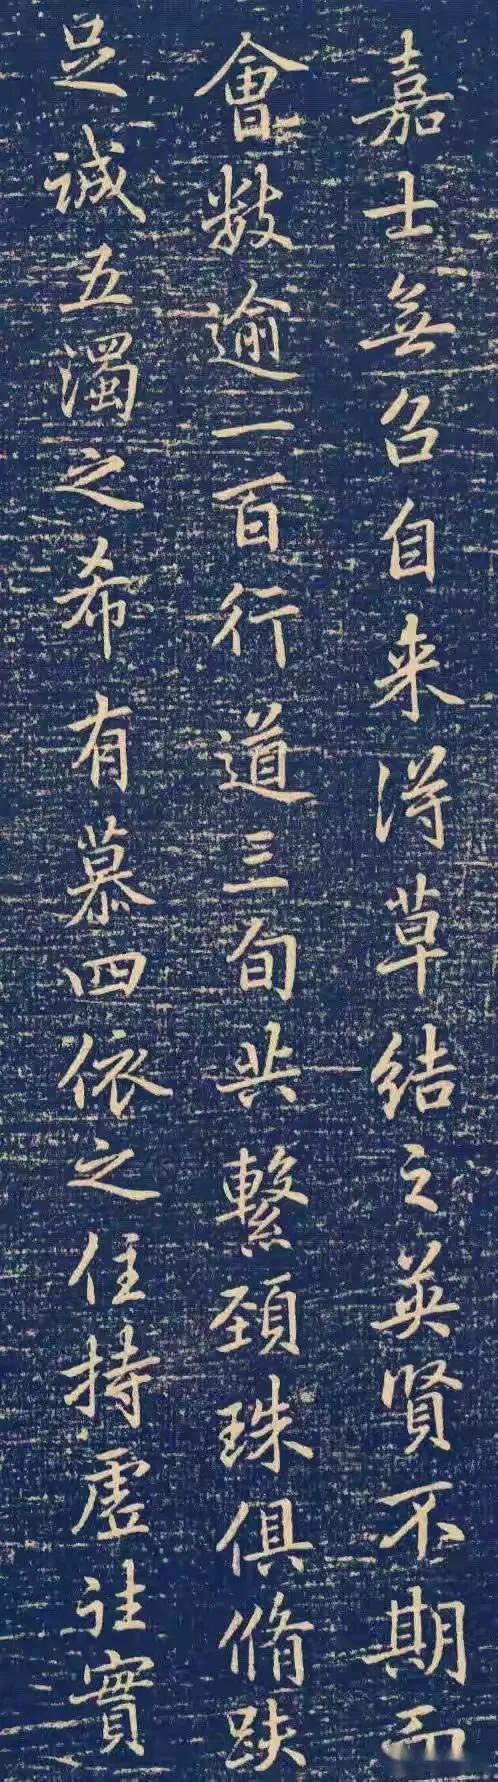 嘉士無召自来得草結之英賢不期而
會數逾一百行道三旬共繫頸珠俱脩趺
足誠五濁之希有慕四依之住持虛往實